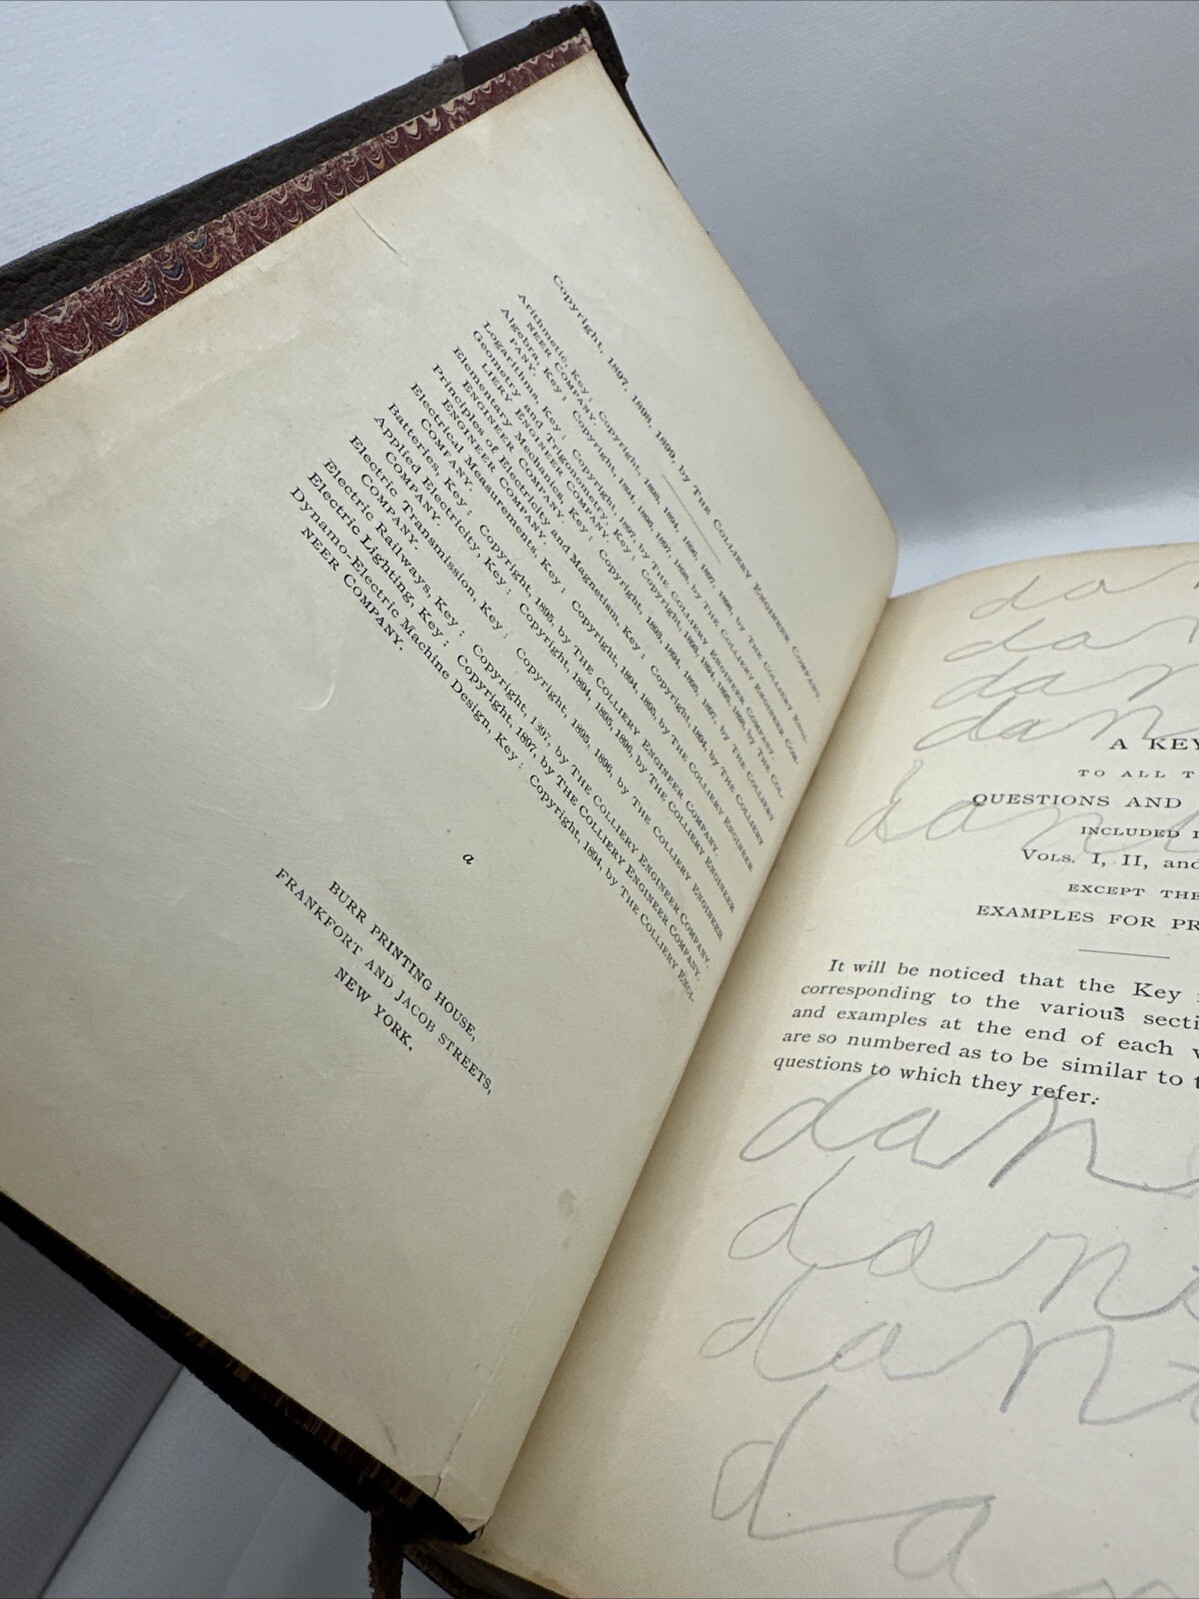 Copyright, 1897, 1898, 1899, by THE COLLIERY ENGINEER COMPANY.
Arithmetic, Key: Copyright, 1893, 1894, 1896, 1897, 1898, by THE COLLIERY ENGI-
NEER COMPANY.
Algebra, Key: Copyright, 1894, 1896, 1897, 1898, by THE COLLIERY ENGINEER COM-
PANY.
Logarithms, Key: Copyright, 1897, by THE COLLIERY ENGINEER COMPANY.
Geometry and Trigonometry, Key: Copyright, 1893, 1894, 1895, 1898, by THE COL-
LIERY ENGINEER COMPANY.
Elementary Mechanics, Key: Copyright, 1893, 1894, 1895, 1897, by THE COLLIERY
ENGINEER COMPANY.
Principles of Electricity and Magnetism, Key: Copyright, 1894, by THE COLLIERY
ENGINEER COMPANY.
Electrical Measurements, Key: Copyright, 1894, 1895, by THE COLLIERY ENGINEER
COMPANY.
Batteries, Key: Copyright, 1895, by THE COLLIERY ENGINEER COMPANY.
Applied Electricity, Key: Copyright, 1894, 1895, 1896, by THE COLLIERY ENGINEER
COMPANY.
Electric Transmission, Key: Copyright, 1895, 1896, by THE COLLIERY ENGINEER
COMPANY.
Electric Railways, Key: Copyright, 1897, by THE COLLIERY ENGINEER COMPANY.
Electric Lighting, Key: Copyright, 1897, by THE COLLIERY ENGINEER COMPANY.
Dynamo-Electric Machine Design, Key: Copyright, 1894, by THE COLLIERY ENGI-
NEER COMPANY.
a
BURR PRINTING HOUSE,
FRANKFORT AND JACOB STREETS,
NEW YORK.
da
dan
dan
dan
A KEY
TO ALL T
QUESTIONS AND
dan
INCLUDED I
VOLS. I, II, and
EXCEPT THE
EXAMPLES FOR PR
It will be noticed that the Key
corresponding to the various secti
and examples at the end of each v
are so numbered as to be similar to t
questions to which they refer:
dan
dan
dan
da